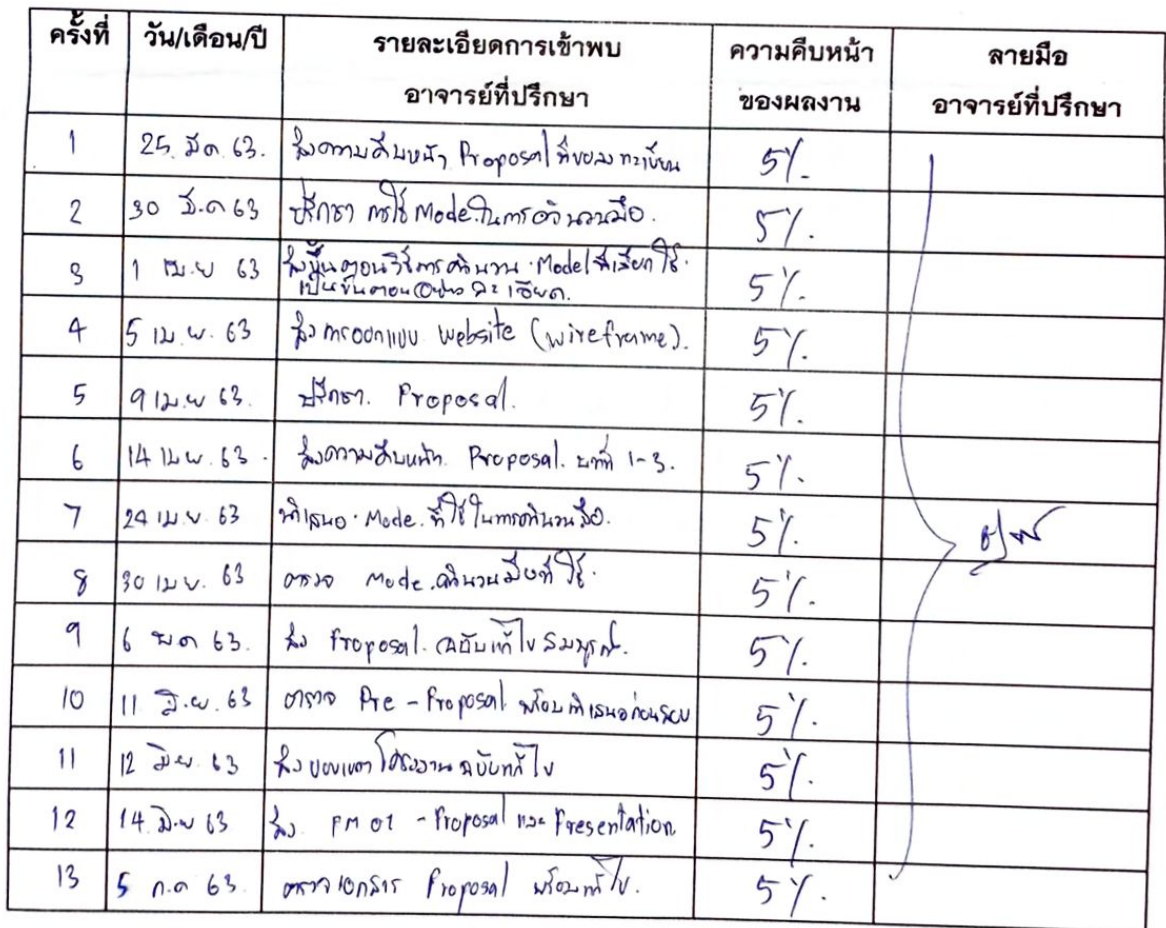 ครั้งที่ วัน/เดือน/ปี รายละเอียดการเข้าพบ ความคืบหน้า ลายมือ
อาจารย์ที่ปรึกษา ของผลงาน อาจารย์ที่ปรึกษา
1 25 มี.ค 63. ส่งความคืบหน้า Proposal ที่ขอลงทะเบียน 5%.
2 30 มี.ค 63 ปรึกษา การใช้ Mode.ในการคำนวนมือ. 5%.
3 1 เม.ย 63 ส่งขั้นตอนวิธีการคำนวน Model ที่เลือกใช้.
เป็นขั้นตอนอย่างละเอียด. 5%.
4 5 เม.ย. 63 ส่งการออกแบบ website (wireframe). 5%.
5 9 เม.ย 63. ปรึกษา. Proposal. 5%.
6 14 เม.ย. 63. ส่งความคืบหน้า. Proposal. บทที่ 1-3. 5%.
7 24 เม.ย. 63 นำเสนอ Mode. ที่ใช้ในการคำนวนมือ. 5%.
8 30 เม.ย. 63 ตรวจ Mode.คำนวนมือที่ใช้. 5%.
9 6 พ.ค 63. ส่ง Proposal. ฉบับแก้ไขสมบูรณ์. 5%.
10 11 มิ.ย. 63 ตรวจ Pre-Proposal พร้อมนำเสนอก่อนสอบ 5%.
11 12 มิ.ย. 63 ส่งขอบเขตโครงงานฉบับแก้ไข 5%.
12 14 มิ.ย 63 ส่ง. PM 01 - Proposal และ Presentation 5%.
13 5 ก.ค 63. ตรวจเอกสาร Proposal พร้อมแก้ไข. 5%.